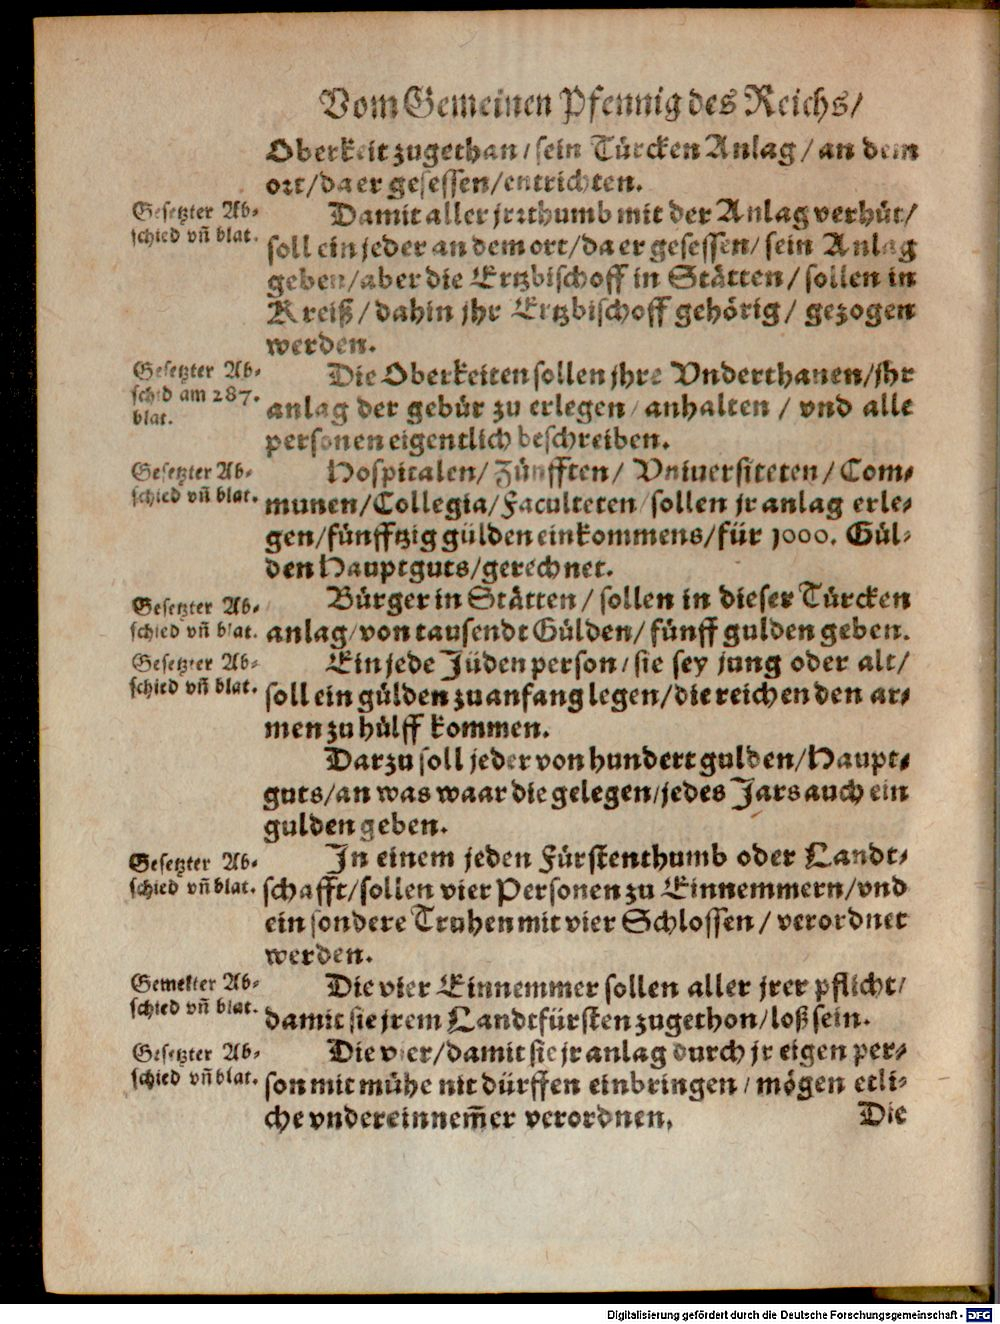 Vom Gemeinen Pfennig des Reichs/
Oberkeit zugethan/sein Türcken Anlag/an dem
ort/da er gesessen/entrichten.
Gesetzter Ab-
schied vñ blat.
Damit aller jrrthumb mit der Anlag verhüt/
soll ein jeder an dem ort/da er gesessen/sein Anlag
geben/aber die Ertzbischoff in Stätten/sollen in
Kreiß/dahin jhr Ertzbischoff gehörig/gezogen
werden.
Gesetzter Ab-
schid am 287.
blat.
Die Oberkeiten sollen jhre Vnderthanen/jhr
anlag der gebür zu erlegen/anhalten/vnd alle
personen eigentlich beschreiben.
Gesetzter Ab-
schied vñ blat.
Hospitalen/Zünfften/Vniuersiteten/Com-
munen/Collegia/Faculteten/sollen jr anlag erle-
gen/fünfftzig gülden einkommens/für 1000. Gül-
den Hauptguts/gerechnet.
Gesetzter Ab-
schied vñ blat.
Bürger in Stätten/sollen in dieser Türcken
anlag/von tausendt Gülden/fünff gulden geben.
Gesetzter Ab-
schied vñ blat.
Ein jede Jüden person/sie sey jung oder alt/
soll ein gülden zu anfang legen/die reichen den ar-
men zu hülff kommen.
Darzu soll jeder von hundert gulden/Haupt-
guts/an was waar die gelegen/jedes Jars auch ein
gulden geben.
Gesetzter Ab-
schied vñ blat.
In einem jeden Fürstenthumb oder Landt-
schafft/sollen vier Personen zu Einnemmern/vnd
ein sondere Truhen mit vier Schlossen/verordnet
werden.
Gemelter Ab-
schied vñ blat.
Die vier Einnemmer sollen aller jrer pflicht/
damit sie jrem Landtfürsten zugethon/loß sein.
Gesetzter Ab-
schied vñ blat.
Die vier/damit sie jr anlag durch jr eigen per-
son mit mühe nit dürffen einbringen/mögen etli-
che vndereinnem̃er verordnen,
Die
Digitalisierung gefördert durch die Deutsche Forschungsgemeinschaft - DFG